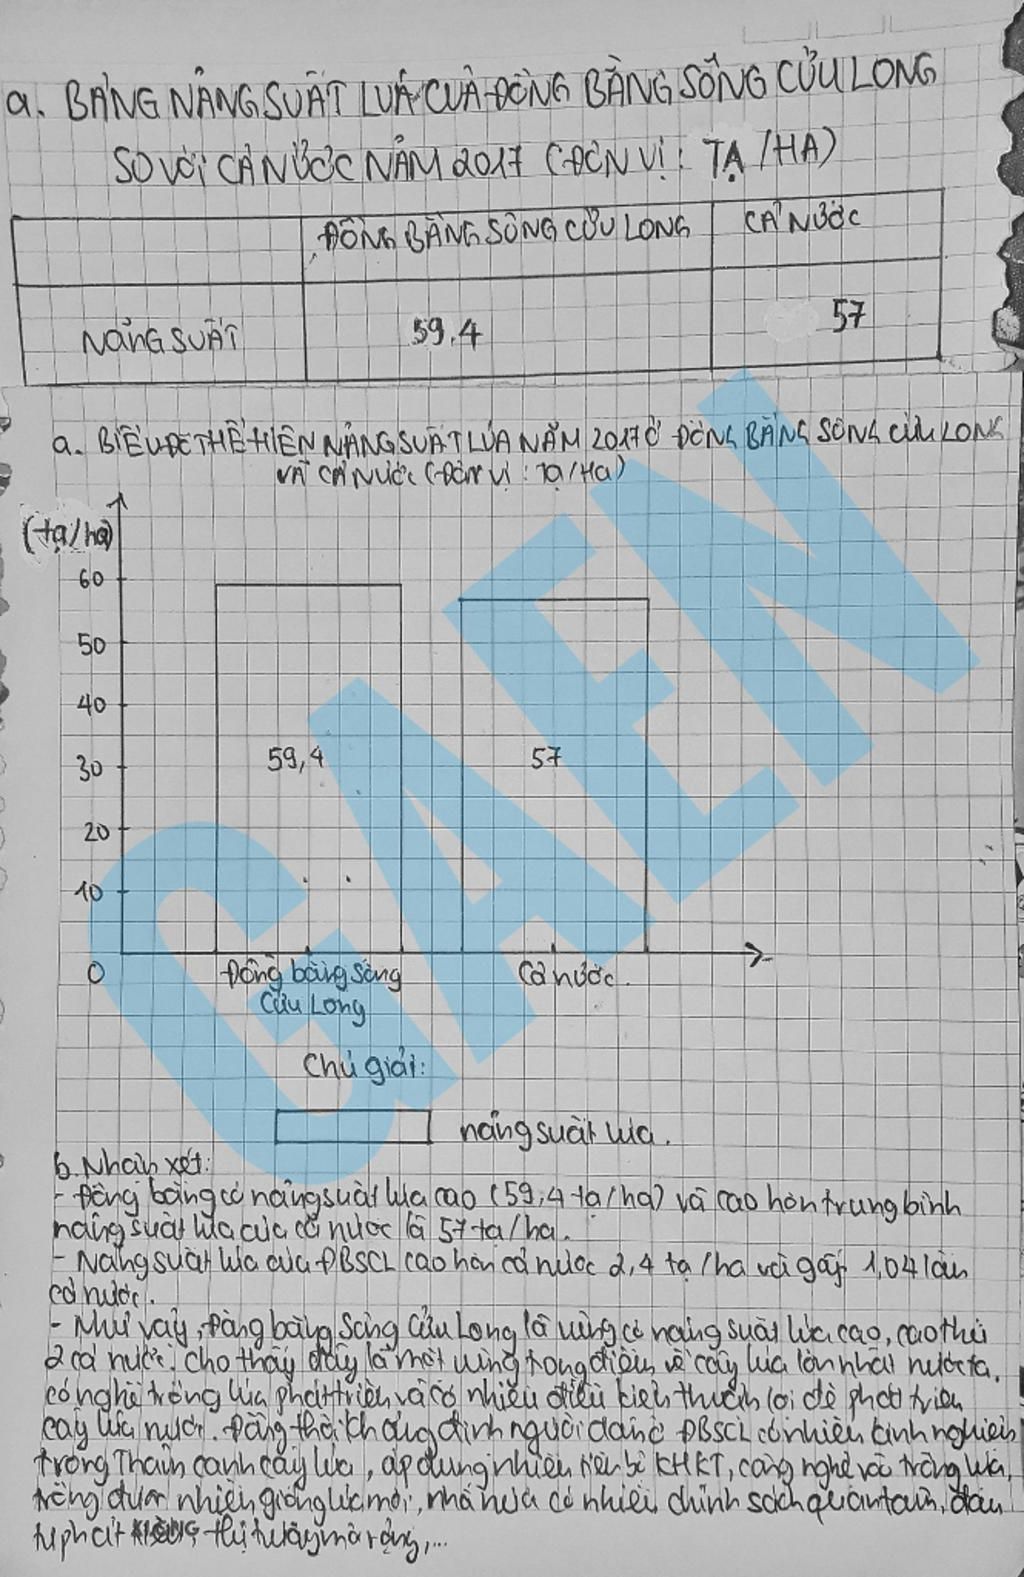 a. BẢNG NĂNG SUẤT LÚA CỦA ĐỒNG BẰNG SÔNG CỬU LONG
SO VỚI CẢ NƯỚC NĂM 2017 (ĐƠN VỊ: TẠ/HA)
ĐỒNG BẰNG SÔNG CỬU LONG CẢ NƯỚC
NĂNG SUẤT 59,4 57
a. BIỂU ĐỒ THỂ HIỆN NĂNG SUẤT LÚA NĂM 2017 Ở ĐỒNG BẰNG SÔNG CỬU LONG
VÀ CẢ NƯỚC (ĐƠN VỊ: TẠ/HA)
(tạ/ha)
60
50
40
30
20
10
0
59,4 57
Đồng bằng sông Cả nước.
Cửu Long
Chú giải:
năng suất lúa.
GAEN
b. Nhận xét:
- Đồng bằng có năng suất lúa cao (59,4 tạ/ha) và cao hơn trung bình
năng suất lúa của cả nước là 57 tạ/ha.
- Năng suất lúa của ĐBSCL cao hơn cả nước 2,4 tạ/ha và gấp 1,04 lần
cả nước.
- Như vậy, Đồng bằng Sông Cửu Long là vùng có năng suất lúa cao, cao thứ
2 cả nước. Cho thấy đây là một vùng trọng điểm về cây lúa lớn nhất nước ta,
có nghề trồng lúa phát triển và có nhiều điều kiện thuận lợi để phát triển
cây lúa nước. Đồng thời khẳng định người dân ở ĐBSCL có nhiều kinh nghiệm
trong thâm canh cây lúa, áp dụng nhiều tiến bộ KHKT, công nghệ vào trồng lúa,
trồng được nhiều giống lúa mới, nhà nước có nhiều chính sách quan tâm, đầu
tư phát triển, thị trường mở rộng,...